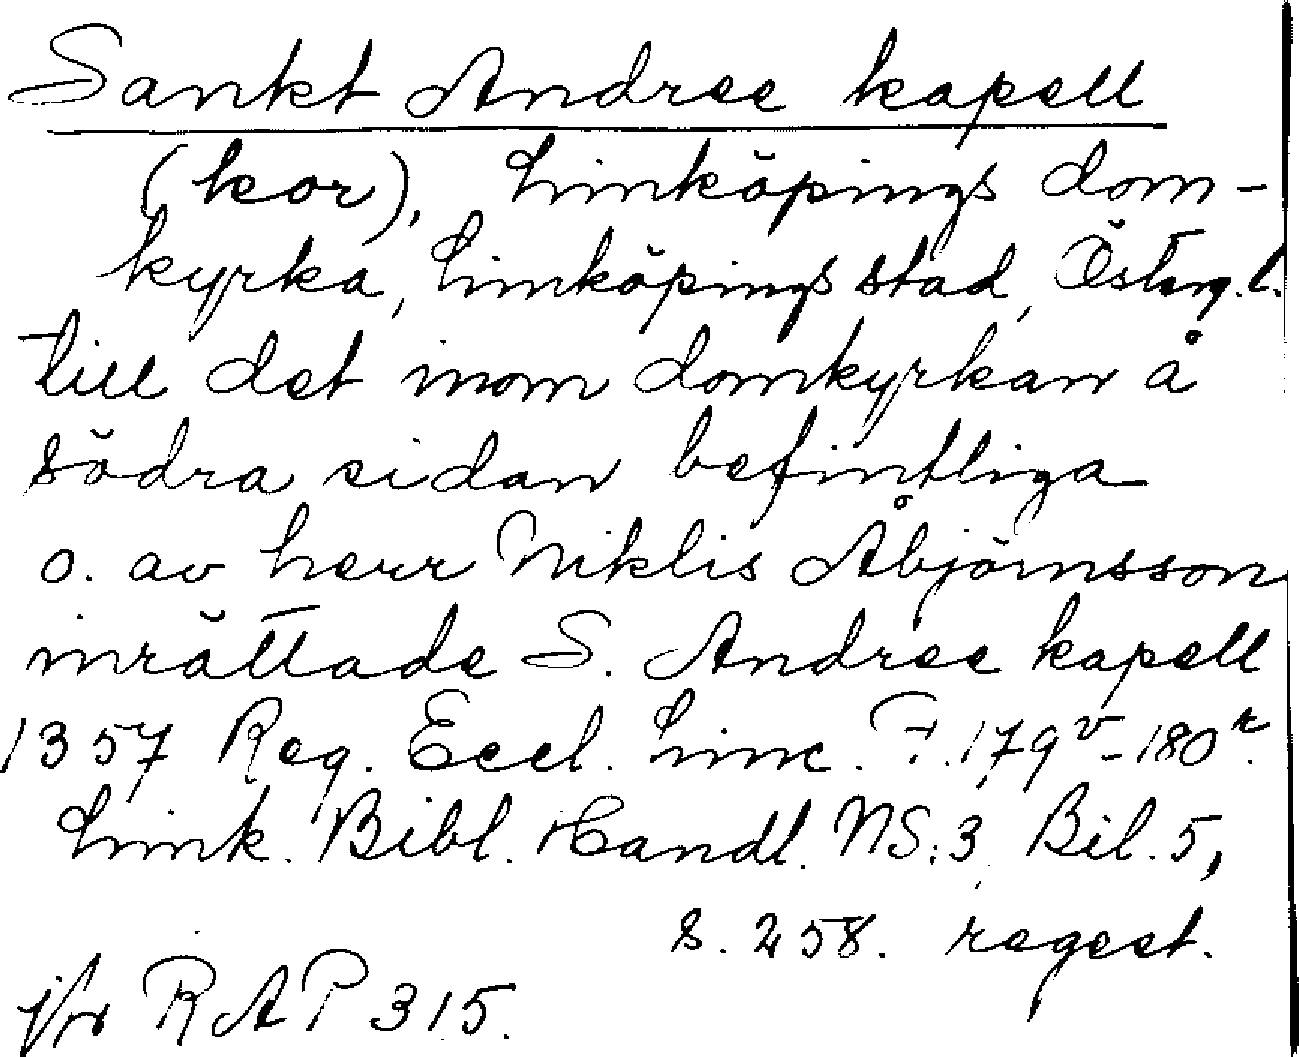 Sankt Andree kapell
(kor), Linköpings dom-
kyrka, Linköpings stad, Österg.l.
till det inom domkyrkan å
södra sidan befintliga
o. av herr Niklis Åbjörnsson
inrättade S. Andree kapell
1357 Reg. Eccl. Linc. F. 179v-180r.
Link. Bibl. Handl. NS:3 Bil. 5,
s. 258. regest.
jfr RAP 315.